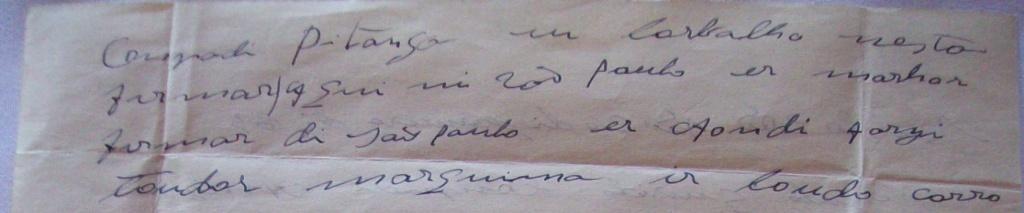 Compadi Pitanga eu torbalho nesta
firmar aqui ni são paulo er marhor
firmar di são paulo er aondi forzi
toudar marguina ir toudo carro